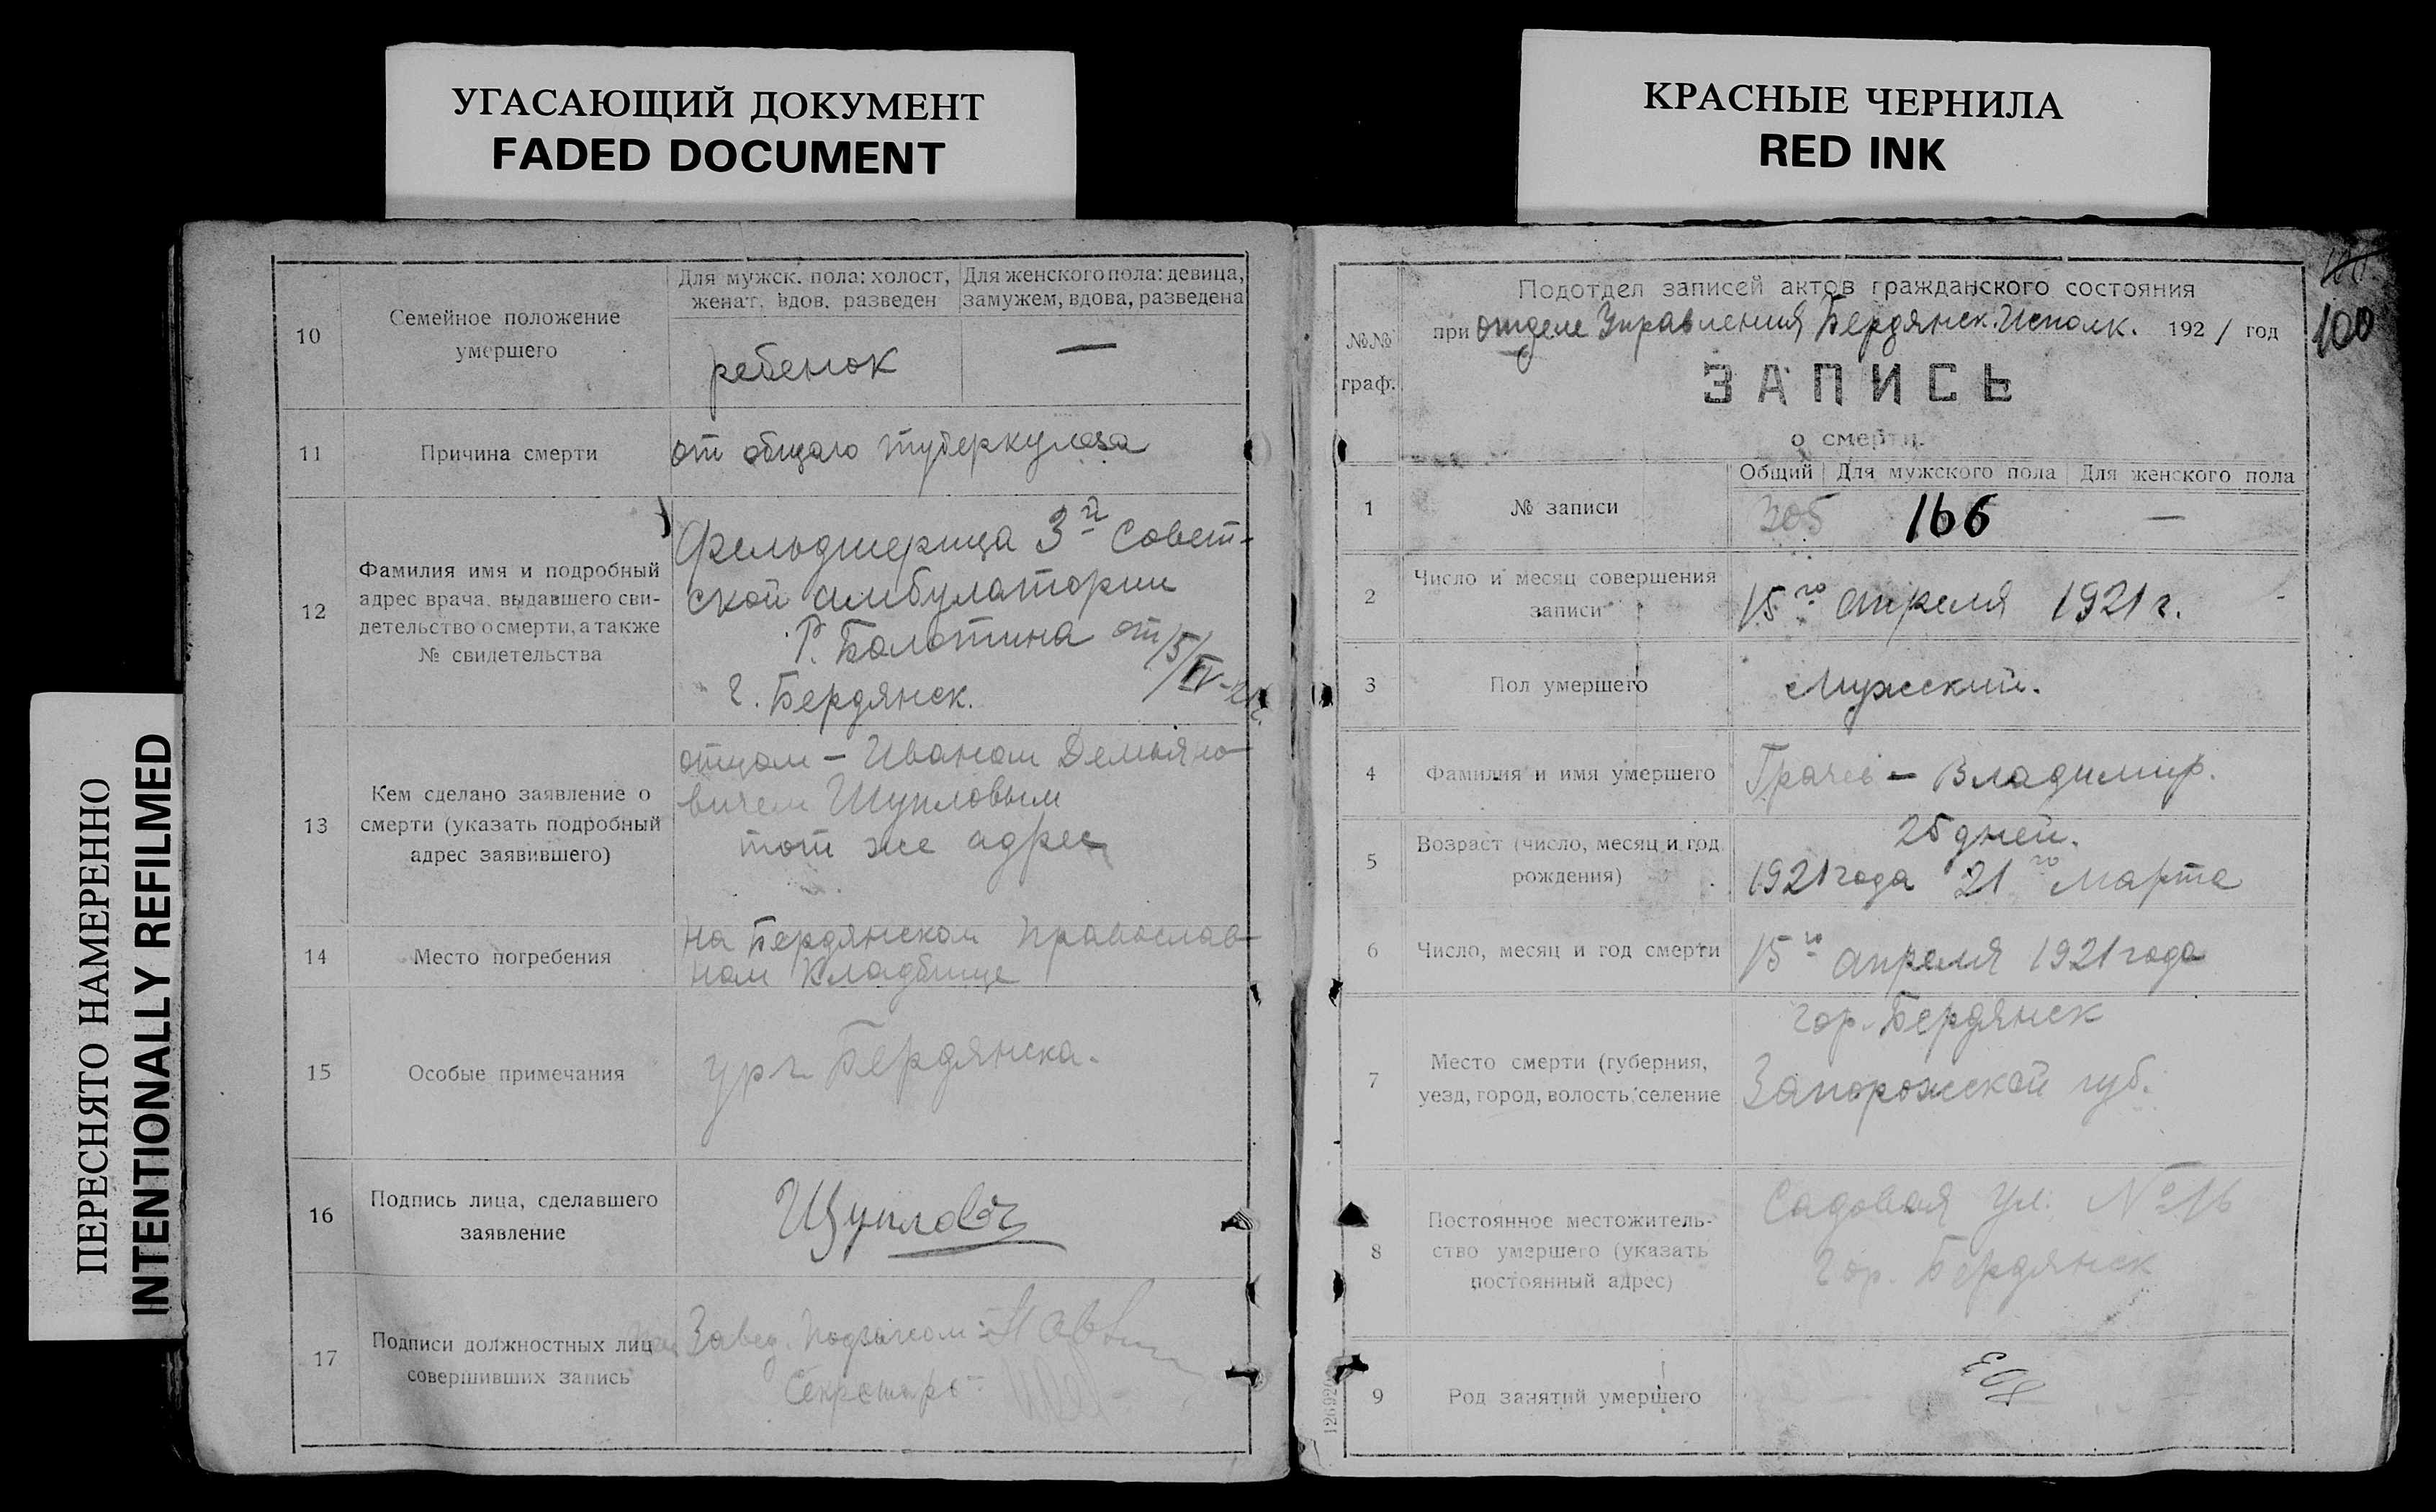 УГАСАЮЩИЙ ДОКУМЕНТ
FADED DOCUMENT
КРАСНЫЕ ЧЕРНИЛА
RED INK
ПЕРЕСНЯТО НАМЕРЕННО
INTENTIONALLY REFILMED
10
Семейное положение
умершего
Для мужск. пола: холост,
женат, вдов, разведен
Для женского пола: девица,
замужем, вдова, разведена
ребенок
—
11
Причина смерти
от общаго туберкулоза
12
Фамилия имя и подробный
адрес врача, выдавшего сви-
детельство о смерти, а также
№ свидетельства
Фельдшерица 3й Совет-
ской амбулатории
Р. Болотина от 15/IV-21г.
г. Бердянск.
13
Кем сделано заявление о
смерти (указать подробный
адрес заявившего)
отцом — Иваном Демьяно-
вичем Щупловым
тот же адрес
14
Место погребения
на Бердянском православ-
ном кладбище
15
Особые примечания
ур г. Бердянска.
16
Подпись лица, сделавшего
заявление
Щуплов
17
Подписи должностных лиц
совершивших запись
Завед. Подотделом
Секретарь
100
№№
граф.
Подотдел записей актов гражданского состояния
при отделе Управления Бердянск. Исполк. 1921 год
ЗАПИСЬ
о смерти.
Общий
Для мужского пола
Для женского пола
1
№ записи
305
166
—
2
Число и месяц совершения
записи
15го апреля 1921 г.
3
Пол умершего
Мужский.
4
Фамилия и имя умершего
Грачев — Владимир.
5
Возраст (число, месяц и год
рождения)
25 дней.
1921 года 21го марта
6
Число, месяц и год смерти
15го апреля 1921 года
7
Место смерти (губерния,
уезд, город, волость, селение
гор. Бердянск
Запорожской губ.
8
Постоянное местожитель-
ство умершего (указать
постоянный адрес)
Садовая ул. № 16
гор. Бердянск
9
Род занятий умершего